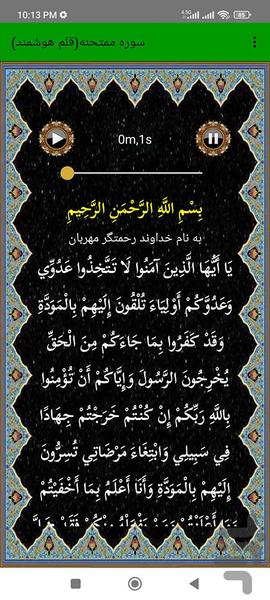 10:13 PM
سوره ممتحنه(قلم هوشمند)
0m,1s
بِسْمِ اللَّهِ الرَّحْمَنِ الرَّحِيمِ
به نام خداوند رحمتگر مهربان
يَا أَيُّهَا الَّذِينَ آمَنُوا لَا تَتَّخِذُوا عَدُوِّي
وَعَدُوَّكُمْ أَوْلِيَاءَ تُلْقُونَ إِلَيْهِمْ بِالْمَوَدَّةِ
وَقَدْ كَفَرُوا بِمَا جَاءَكُمْ مِنَ الْحَقِّ
يُخْرِجُونَ الرَّسُولَ وَإِيَّاكُمْ أَنْ تُؤْمِنُوا
بِاللَّهِ رَبِّكُمْ إِنْ كُنْتُمْ خَرَجْتُمْ جِهَادًا
فِي سَبِيلِي وَابْتِغَاءَ مَرْضَاتِي تُسِرُّونَ
إِلَيْهِمْ بِالْمَوَدَّةِ وَأَنَا أَعْلَمُ بِمَا أَخْفَيْتُمْ